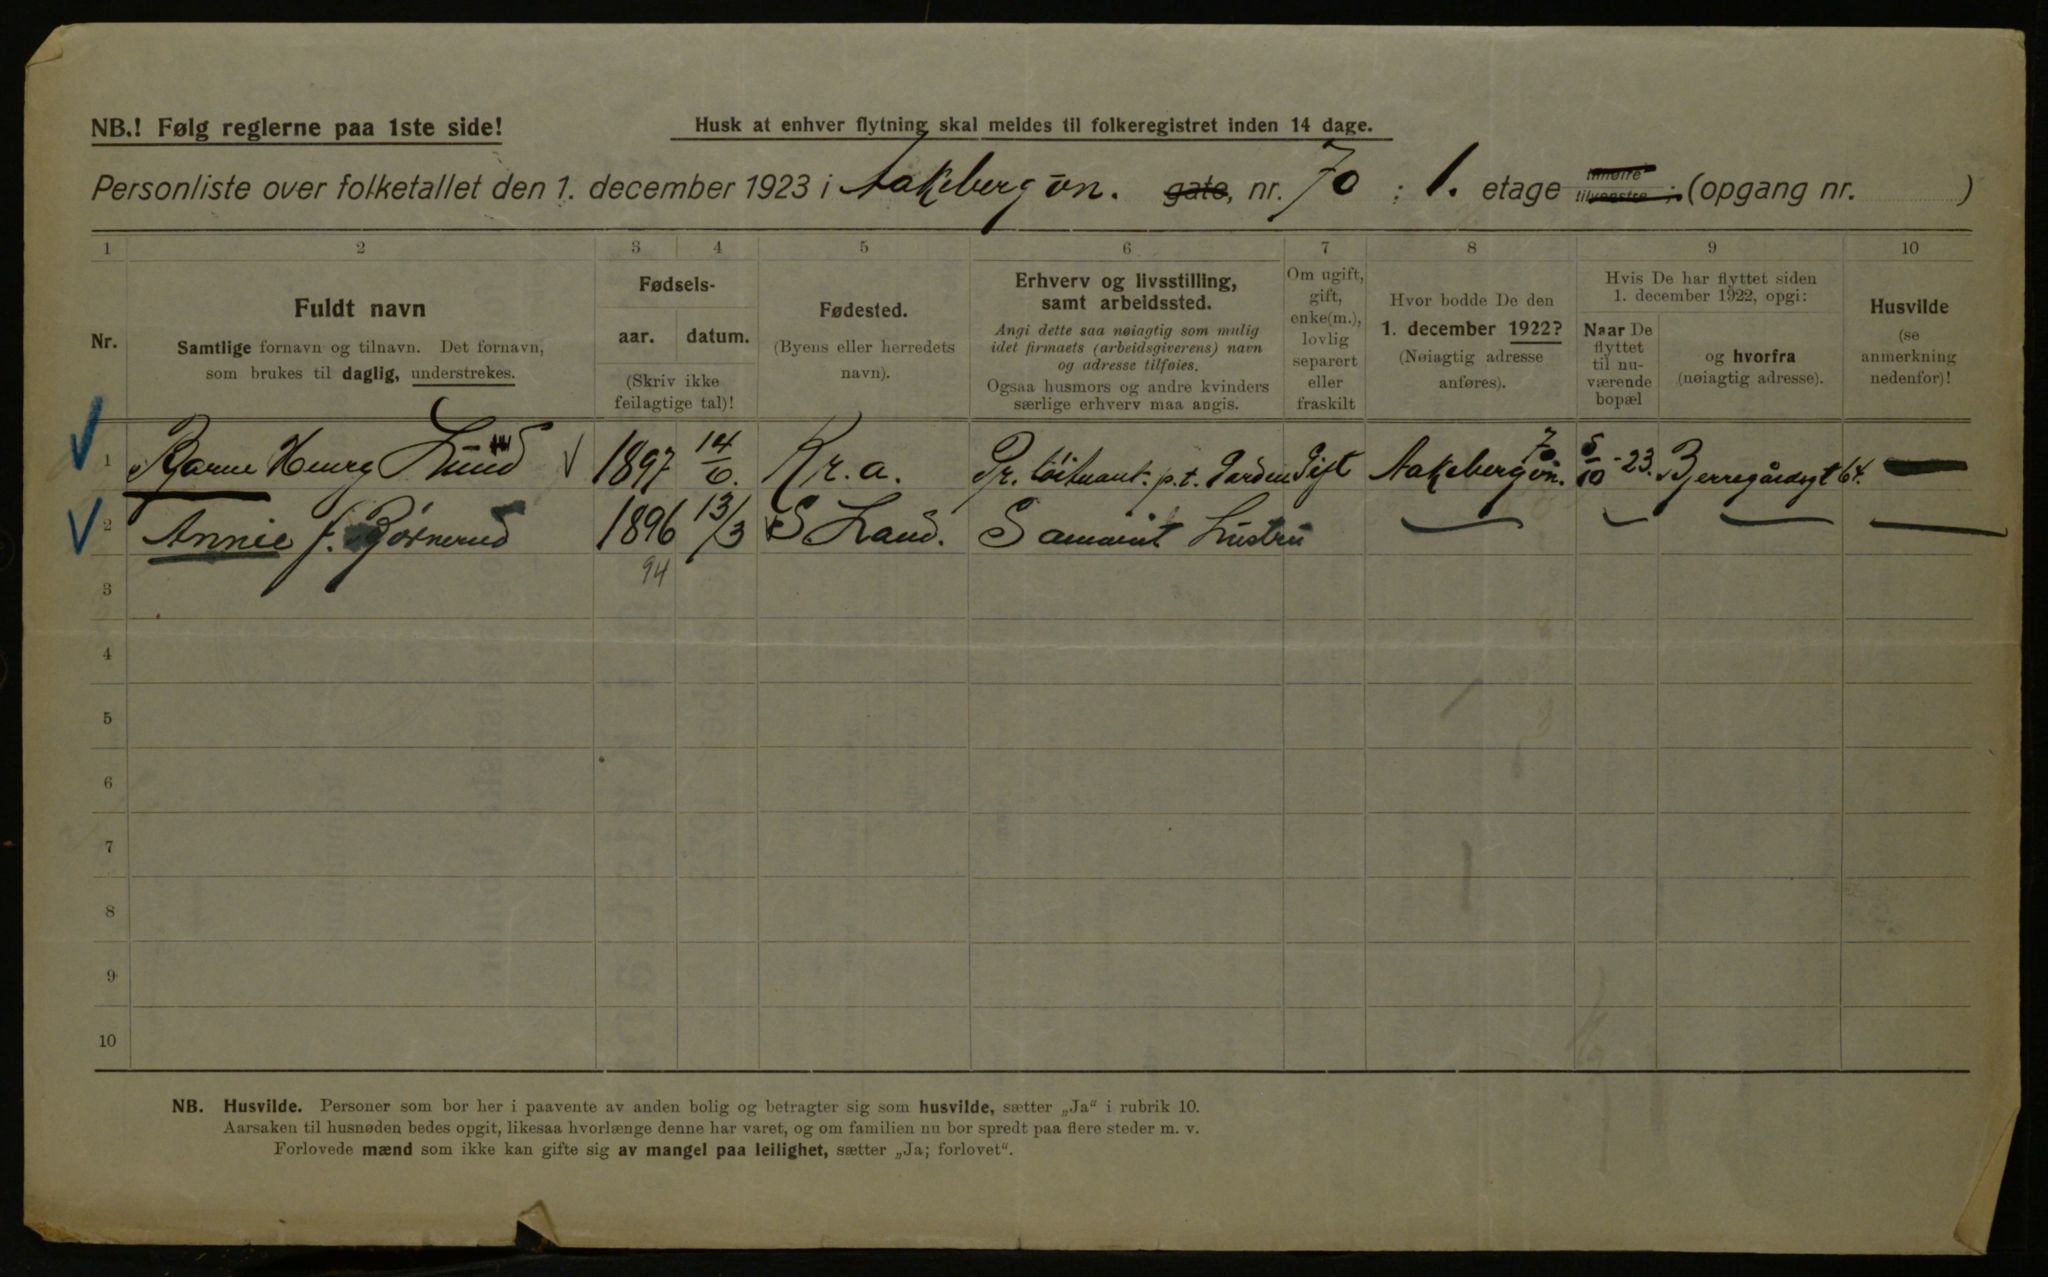 NB.! Følg reglerne paa 1ste side!
Husk at enhver flytning skal meldes til folkeregistret inden 14 dage.
Personliste over folketallet den 1. december 1923 i Aakebergvn. gate, nr. 70 ; 1. etage tilhøire tilvenstre ; (opgang nr. )
1 2 3 4 5 6 7 8 9 10
Nr.
Fuldt navn
Samtlige fornavn og tilnavn. Det fornavn,
som brukes til daglig, understrekes.
Fødsels-
aar. datum.
(Skriv ikke
feilagtige tal)!
Fødested.
(Byens eller herredets
navn).
Erhverv og livsstilling,
samt arbeidssted.
Angi dette saa nøiagtig som mulig
idet firmaets (arbeidsgiverens) navn
og adresse tilføies.
Ogsaa husmors og andre kvinders
særlige erhverv maa angis.
Om ugift,
gift,
enke(m.),
lovlig
separert
eller
fraskilt
Hvor bodde De den
1. december 1922?
(Nøiagtig adresse
anføres).
Hvis De har flyttet siden
1. december 1922, opgi:
Naar De
flyttet
til nu-
værende
bopæl
og hvorfra
(nøiagtig adresse).
Husvilde
(se
anmerkning
nedenfor)!
1 Bjarne Henry Lund 1897 14/6. Kr.a. Pr. löitnant. p.t. Garden Gift Aakebergvn. 70 5/10-23. Bjerregårdsgt 64. —
2 Annie f. Børnerud 1896 13/3 S Land. Hustru
94
3
4
5
6
7
8
9
10
NB. Husvilde. Personer som bor her i paavente av anden bolig og betragter sig som husvilde, sætter „Ja“ i rubrik 10.
Aarsaken til husnøden bedes opgit, likesaa hvorlænge denne har varet, og om familien nu bor spredt paa flere steder m. v.
Forlovede mænd som ikke kan gifte sig av mangel paa leilighet, sætter „Ja; forlovet“.